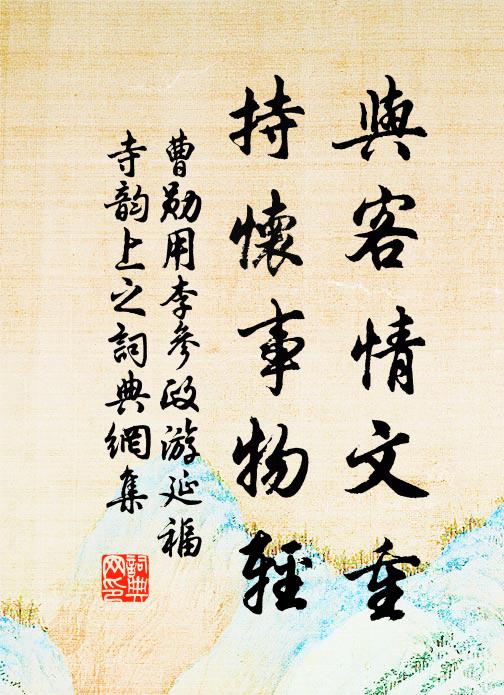 與客情文重
持懷事物輕
曹勛用李參政游延福
寺韵上之詞典網集
詞典
网印